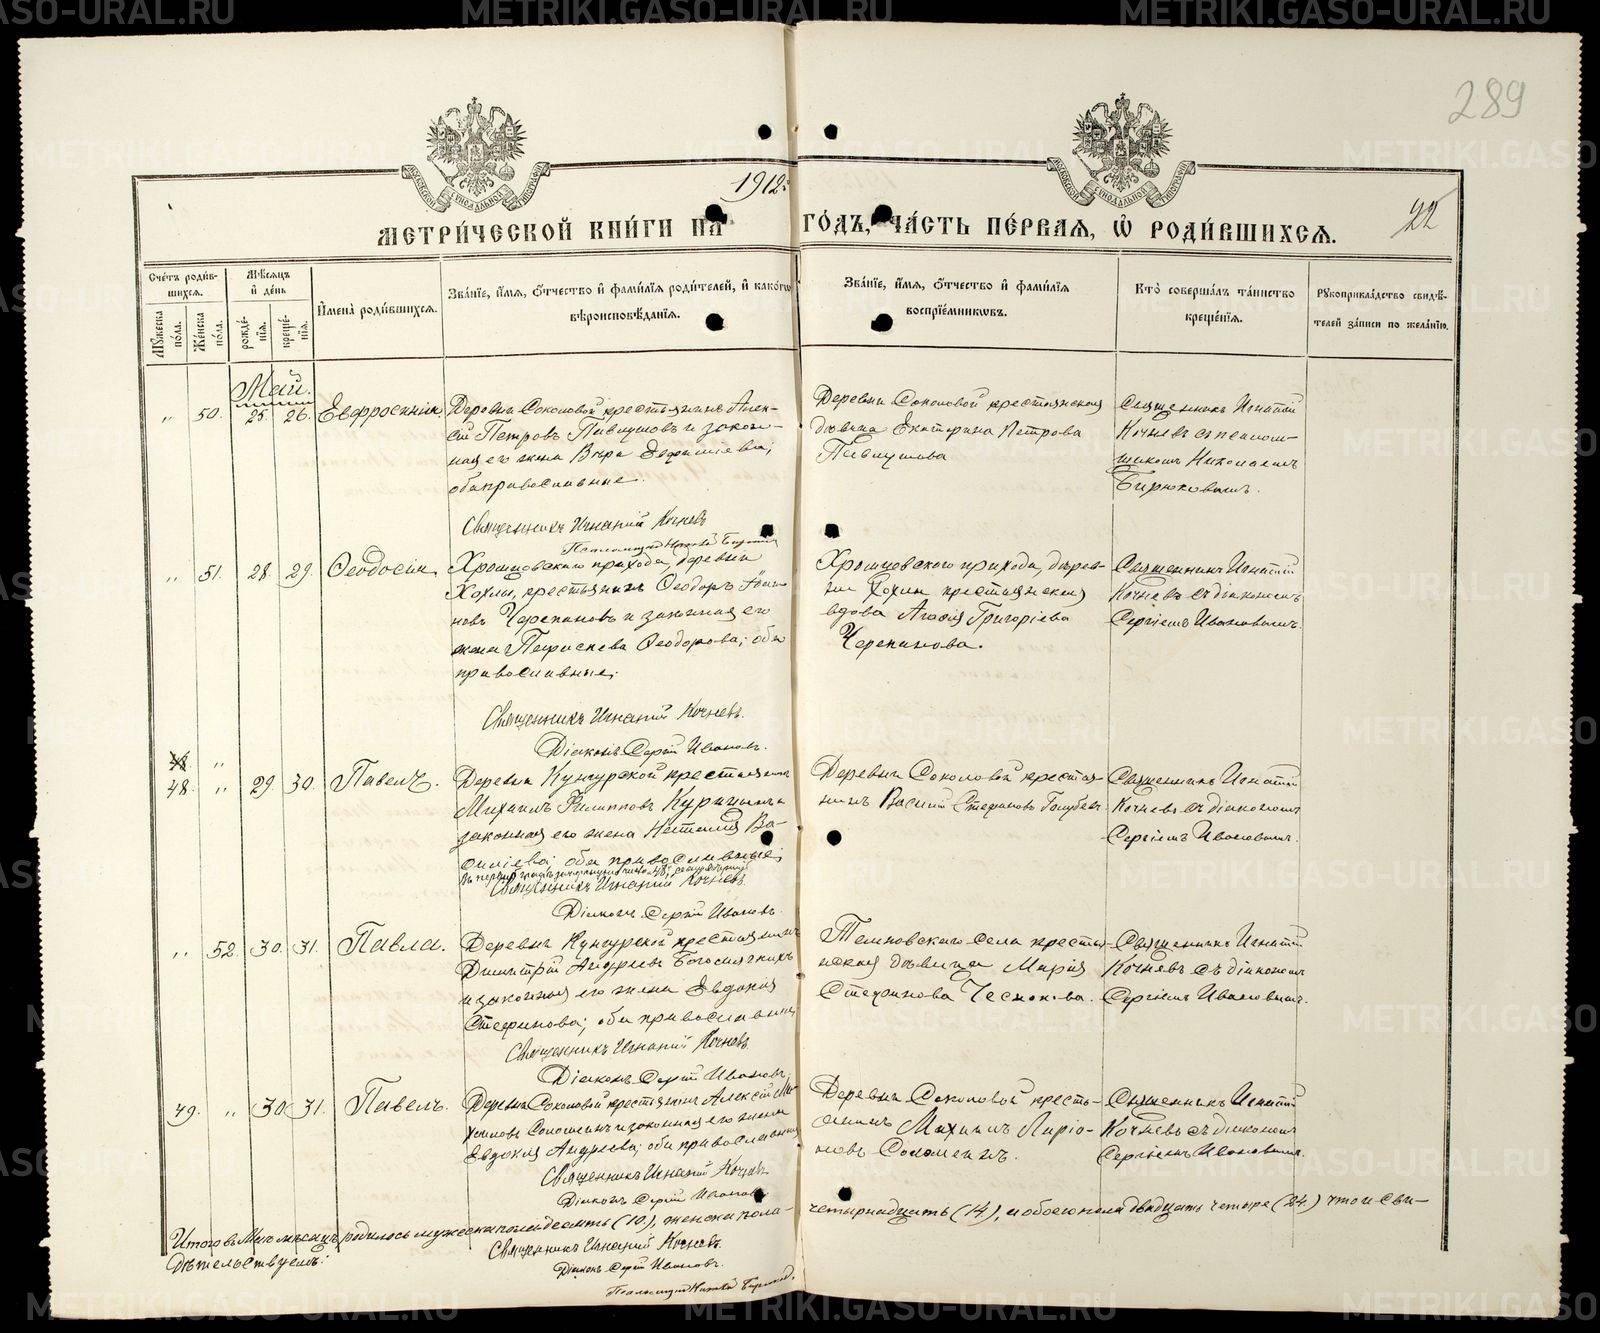 METRIKI.GASO-URAL.RU
289
1912 г.
МЕТРИ́ЧЕСКОЙ КНИ́ГИ НА ГО́ДЪ, ЧА́СТЬ ПЕ́РВАЯ, Ѽ РОДИ́ВШИХСЯ.
22
Сче́тъ роди́в-
шихся.
Му́жеска по́ла.
Же́нска по́ла.
Мѣ́сяцъ и҆ де́нь
рожде́-
нїя.
креще́-
нїя.
И҆мена̀ роди́вшихся.
Зва́нїе, и҆́мя, ѻ҆́тчество и҆ фами́лїя роди́телей, и҆ како́гѡ
вѣроисповѣ́данїя.
Зва́нїе, и҆́мя, ѻ҆́тчество и҆ фами́лїя
воспрїе́мникѡвъ.
Кто̀ соверша́лъ та́инство
креще́нїя.
Рукоприкла́дство свидѣ́-
телей за́писи по жела́нїю.
Май.
„ 50. 25. 26. Евфросинія
Деревни Соколовой крестьянинъ Алек-
сій Петровъ Павлушовъ и закон-
ная его жена Вѣра Евфиміева;
оба православные.
Священникъ Игнатій Кочневъ
Деревни Соколовой крестьянская
дѣвица Екатерина Петрова
Павлушова
Священникъ Игнатій
Кочневъ съ псалом-
щикомъ Николаемъ
Бирюковымъ.
„ 51. 28. 29. Ѳеодосія
прихода, деревни
крестьянинъ Ѳеодоръ
новъ Черепановъ и законная его
жена Ѳеодорова; оба
православные;
Священникъ Игнатій Кочневъ.
Діаконъ Сергій Ивановъ.
прихода, дерев-
ни крестьянская
вдова Агафія Григоріева
Черепанова.
Священникъ Игнатій
Кочневъ съ діакономъ
Сергіемъ Ивановымъ.
48. „ 29. 30. Павелъ.
Деревни Кунгурской крестьянинъ
Михаилъ Филипповъ и
законная его жена Наталія Ва-
силіева; оба православные;
Священникъ Игнатій Кочневъ.
Діаконъ Сергій Ивановъ.
Деревни Соколовой крестья-
нинъ Василій Стефановъ Голубевъ.
Священникъ Игнатій
Кочневъ съ діакономъ
Сергіемъ Ивановымъ.
„ 52. 30. 31. Павла.
Деревни Кунгурской крестьянинъ
Димитрій Андреевъ
и законная его жена Евдокія
Стефанова; оба православные
Священникъ Игнатій Кочневъ.
Діаконъ Сергій Ивановъ.
села крестьян-
ская дѣвица Марія
Стефанова Чеснокова.
Священникъ Игнатій
Кочневъ съ діакономъ
Сергіемъ Ивановымъ.
49. „ 30 31. Павелъ.
Деревни Соколовой крестьянинъ Алексій Ми-
хаиловъ Соломеинъ и законная его жена
Евдокія Андреева; оба православные
Священникъ Игнатій Кочневъ
Діаконъ Сергій Ивановъ
Деревни Соколовой кресть-
янинъ Михаилъ Ларіо-
новъ Соломеинъ.
Священникъ Игнатій
Кочневъ съ діакономъ
Сергіемъ Ивановымъ.
Итого въ Маѣ мѣсяцѣ родилось мужеска пола десять (10), женска пола- четырнадцать (14), а обоего пола двадцать четыре (24) что и сви-
дѣтельствуемъ:
Священникъ Игнатій Кочневъ.
Діаконъ Сергій Ивановъ.